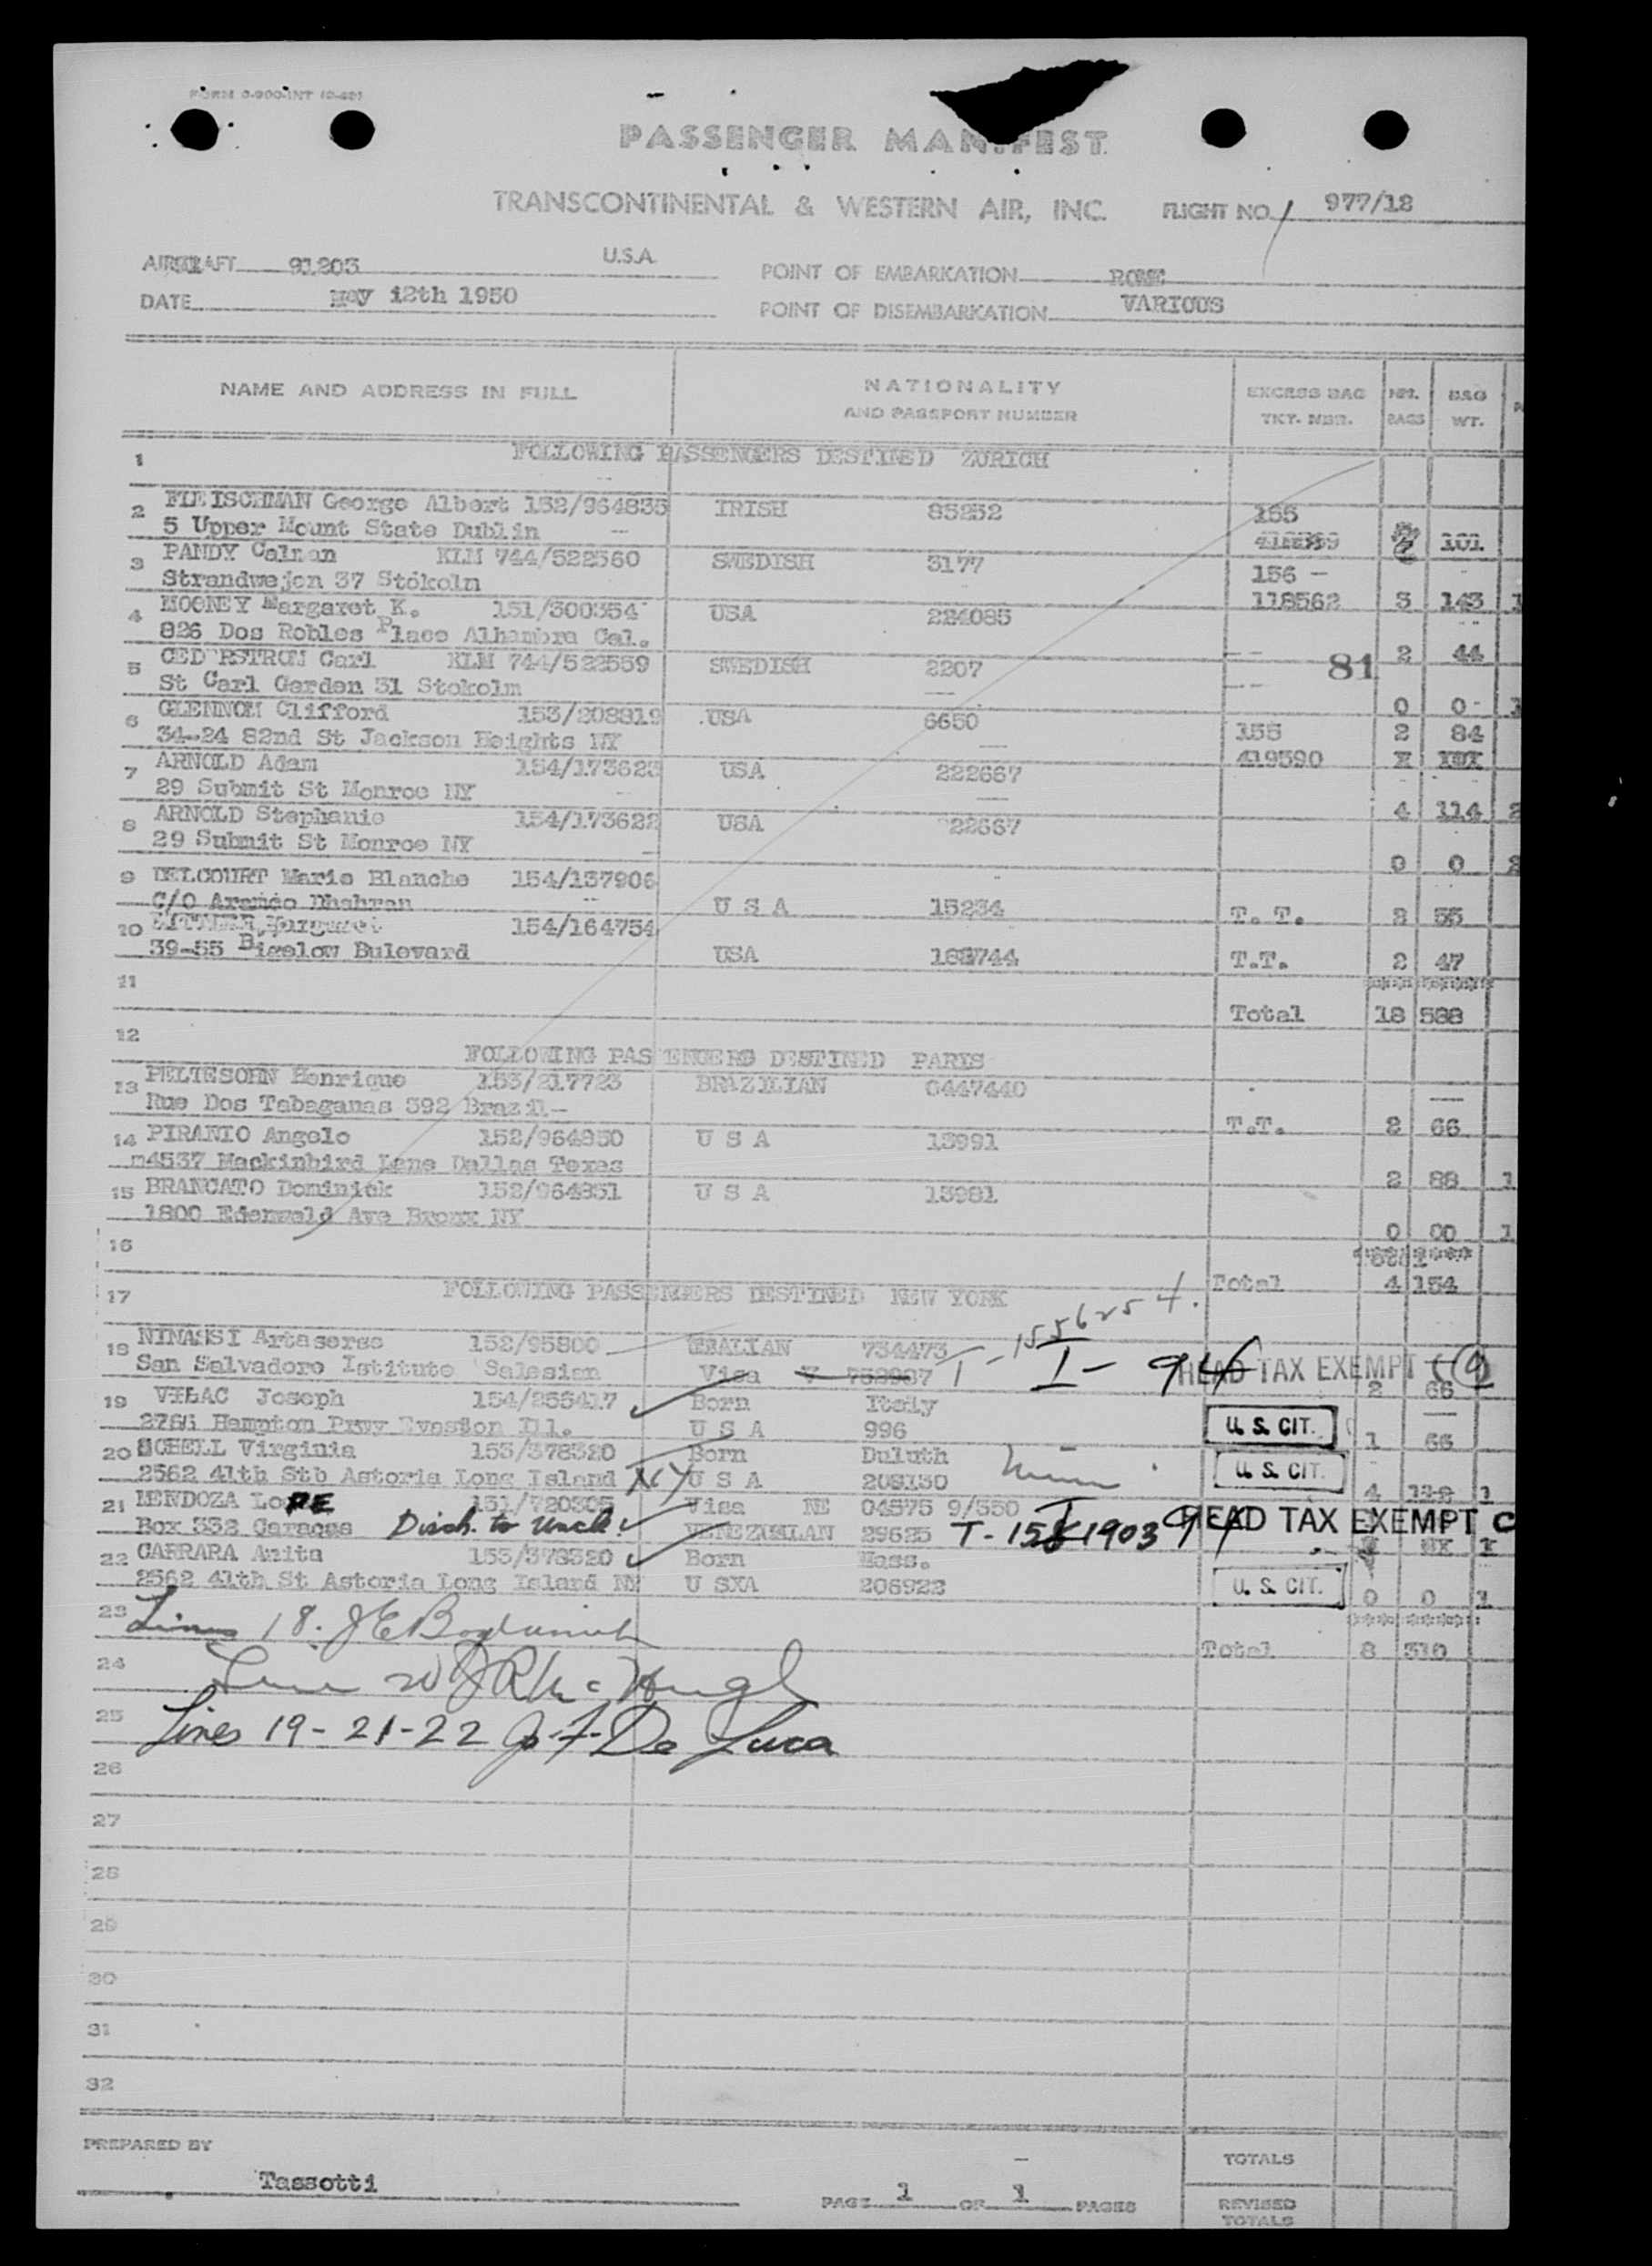 PASSENGER MANIFEST
TRANSCONTINENTAL & WESTERN AIR, INC. FLIGHT NO. 977/18
AIRCRAFT 91203 U.S.A. POINT OF EMBARKATION ROME
DATE May 12th 1950 POINT OF DISEMBARKATION VARIOUS
NAME AND ADDRESS IN FULL NATIONALITY AND PASSPORT NUMBER EXCESS BAG TKT. NBR. NBR. BAGS BAG WT.
1 FOLLOWING PASSENGERS DESTINED ZURICH
2 FLEISCHMAN George Albert 152/964835 IRISH 85252 155
5 Upper Mount State Dublin 101
3 PANDY Calman KLM 744/522560 SWEDISH 3177 156 -
Strandwejen 37 Stokoln 118562 3 143 1
4 MOONEY Margaret K. 151/300354 USA 224085
826 Dos Robles Place Alhambra Cal. 2 44
5 CEDERSTROM Carl KLM 744/522559 SWEDISH 2207 81
St Carl Garden 31 Stokolm 0 0 1
6 GLENNOM Clifford 153/208819 USA 6650 155 2 84
34-24 82nd St Jackson Heights NY 419590
7 ARNOLD Adam 154/173623 USA 222667
29 Submit St Monroe NY 4 114 2
8 ARNOLD Stephanie 154/173622 USA 22667
29 Submit St Monroe NY 0 0 2
9 DELCOURT Marie Blanche 154/137906
C/O Aramco Dhahran U S A 15234 T. T. 2 55
10 Margaret 154/164754
39-55 Bigelow Bulevard USA 188744 T.T. 2 47
11
Total 18 588
12
FOLLOWING PASSENGERS DESTINED PARIS
13 PELTESOHN Henrique 153/217723 BRAZILIAN 0447440
Rue Dos Tabaganas 592 Brazil- T.T. 2 66
14 PIRANIO Angelo 152/964850 U S A 13991
m4537 Mackinbird Lane Dallas Texas 2 88 1
15 BRANCATO Dominick 152/964851 U S A 13981
1800 Edenwald Ave Bronx NY 0 00 1
16
Total 4 154
17 FOLLOWING PASSENGERS DESTINED NEW YORK
18 NIMASSI Artaserse 152/95800 ITALIAN 734473 T-1556254.
San Salvadore Istitute Salesian Visa V 752937 I - 94 HEAD TAX EXEMPT 2 66
19 VILAC Joseph 154/255417 Born Italy
2766 Hampton Prwy Evaston Ill. U S A 996 U. S. CIT. 1 66
20 SCHELL Virginia 153/378320 Born Duluth Minn
2562 41th Stb Astoria Long Island NY U S A 208130 U. S. CIT. 4 1
21 MENDOZA LoPE 151/720305 Visa NE 04575 9/550
Box 332 Caracas Disch. to Uncle VENEZUELAN 29625 T-1581903 HEAD TAX EXEMPT C
22 CARRARA Anita 153/378320 Born Mass.
2562 41th St Astoria Long Island NY U SXA 206922 U. S. CIT. 0 0 1
23 Lines 18.
Total 8 310
24 Line 20 J R Mc Hugh
25 Lines 19-21-22 J. F. De Luca
26
27
28
29
30
31
32
PREPARED BY Tassotti
PAGE 1 OF 1 PAGES
TOTALS
REVISED TOTALS